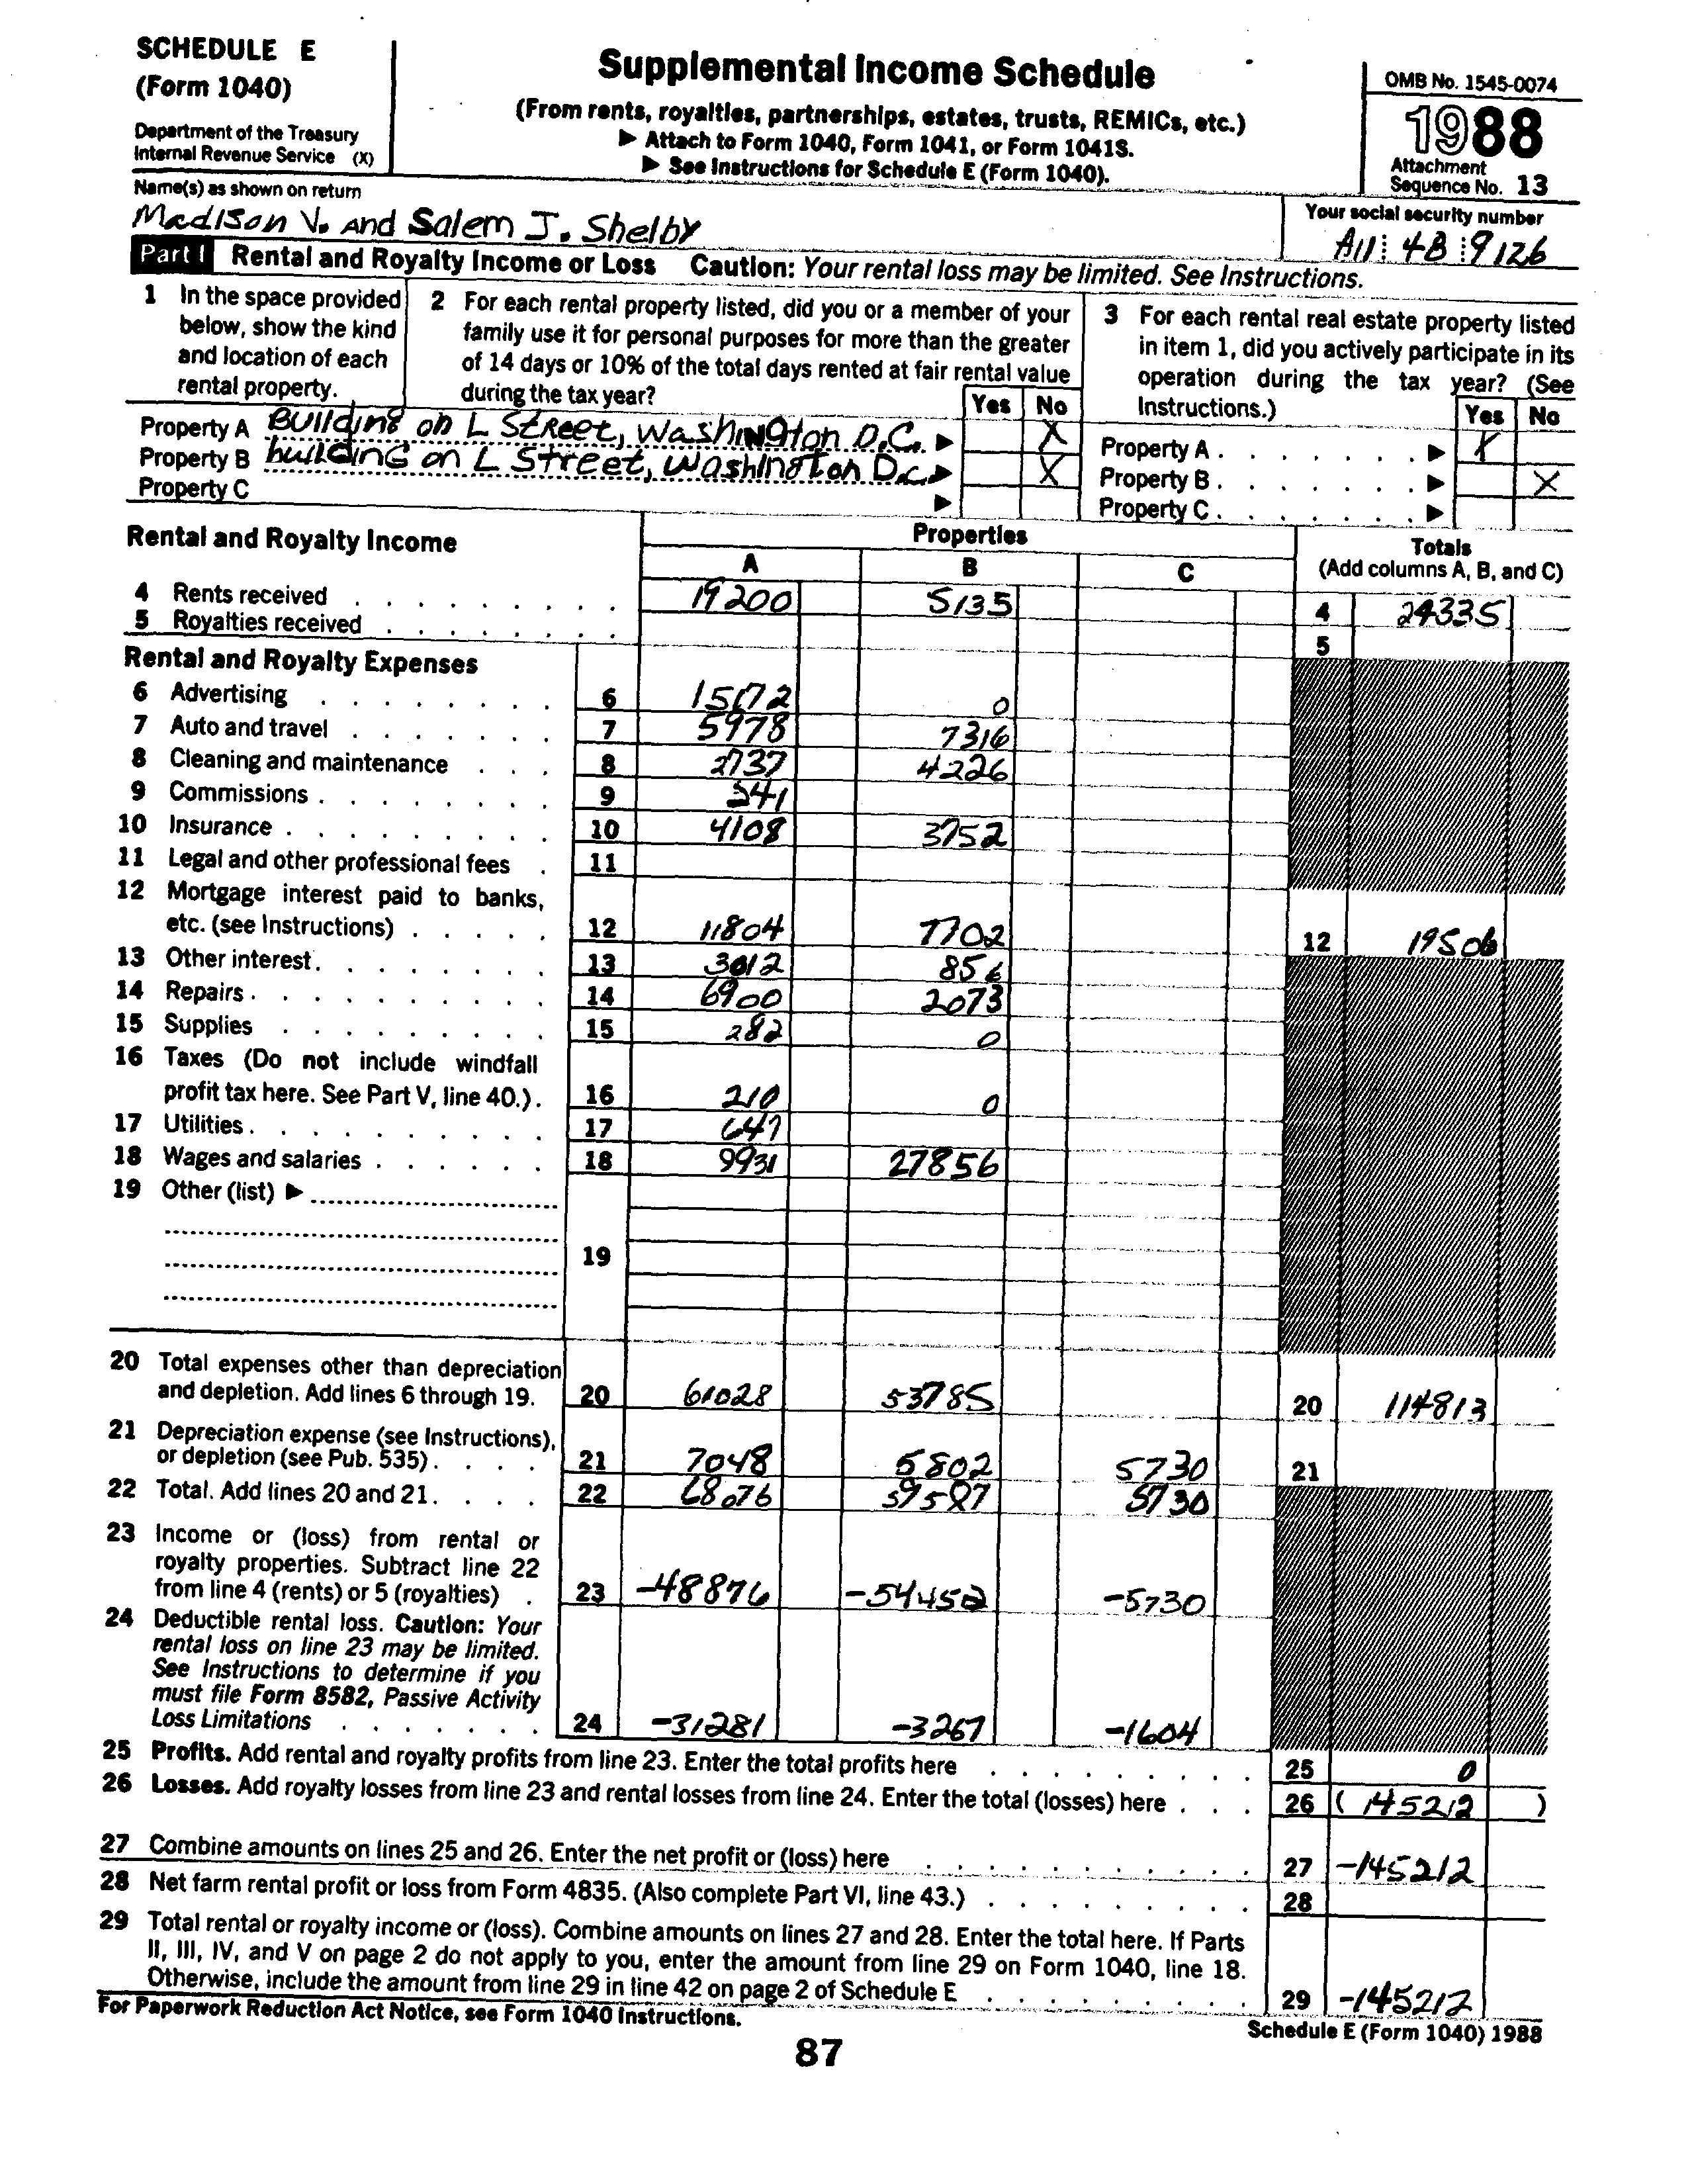 SCHEDULE E
(Form 1040)
Department of the Treasury
Internal Revenue Service (X)
Supplemental Income Schedule
(From rents, royalties, partnerships, estates, trusts, REMICs, etc.)
▶ Attach to Form 1040, Form 1041, or Form 1041S.
▶ See Instructions for Schedule E (Form 1040).
OMB No. 1545-0074
1988
Attachment
Sequence No. 13
Name(s) as shown on return
Madison V. and Salem J. Shelby
Your social security number
A11 4B 9126
Part I Rental and Royalty Income or Loss Caution: Your rental loss may be limited. See Instructions.
1 In the space provided
below, show the kind
and location of each
rental property.
2 For each rental property listed, did you or a member of your
family use it for personal purposes for more than the greater
of 14 days or 10% of the total days rented at fair rental value
during the tax year?
Yes No
3 For each rental real estate property listed
in item 1, did you actively participate in its
operation during the tax year? (See
Instructions.)
Yes No
Property A Building on L Street, Washington D.C. ▶ X
Property B building on L Street, Washington D.C. ▶ X
Property C ▶
Property A ▶ X
Property B ▶ X
Property C ▶
Rental and Royalty Income
Properties
A B C
Totals
(Add columns A, B, and C)
4 Rents received 19200 5135 4 24335
5 Royalties received 5
Rental and Royalty Expenses
6 Advertising 6 15172 0
7 Auto and travel 7 5978 7316
8 Cleaning and maintenance 8 2737 4226
9 Commissions 9 341
10 Insurance 10 4108 3752
11 Legal and other professional fees 11
12 Mortgage interest paid to banks,
etc. (see Instructions) 12 11804 7702 12 19506
13 Other interest 13 3012 856
14 Repairs 14 6900 2073
15 Supplies 15 282 0
16 Taxes (Do not include windfall
profit tax here. See Part V, line 40.) 16 210 0
17 Utilities 17 647
18 Wages and salaries 18 9931 27856
19 Other (list) ▶
19
20 Total expenses other than depreciation
and depletion. Add lines 6 through 19. 20 61028 53785 20 114813
21 Depreciation expense (see Instructions),
or depletion (see Pub. 535) 21 7048 5802 5730 21
22 Total. Add lines 20 and 21 22 68076 59587 5730
23 Income or (loss) from rental or
royalty properties. Subtract line 22
from line 4 (rents) or 5 (royalties) 23 -48876 -54452 -5730
24 Deductible rental loss. Caution: Your
rental loss on line 23 may be limited.
See Instructions to determine if you
must file Form 8582, Passive Activity
Loss Limitations 24 -31281 -3267 -1604
25 Profits. Add rental and royalty profits from line 23. Enter the total profits here 25 0
26 Losses. Add royalty losses from line 23 and rental losses from line 24. Enter the total (losses) here 26 (145212)
27 Combine amounts on lines 25 and 26. Enter the net profit or (loss) here 27 -145212
28 Net farm rental profit or loss from Form 4835. (Also complete Part VI, line 43.) 28
29 Total rental or royalty income or (loss). Combine amounts on lines 27 and 28. Enter the total here. If Parts
II, III, IV, and V on page 2 do not apply to you, enter the amount from line 29 on Form 1040, line 18.
Otherwise, include the amount from line 29 in line 42 on page 2 of Schedule E 29 -145212
For Paperwork Reduction Act Notice, see Form 1040 Instructions.
Schedule E (Form 1040) 1988
87